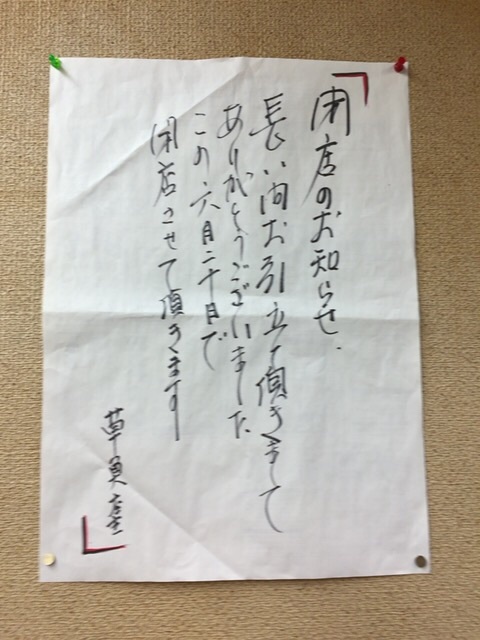 閉店のお知らせ.
長い間お引立て頂きまして
ありがとうございました
この六月二十日で
閉店させて頂きます